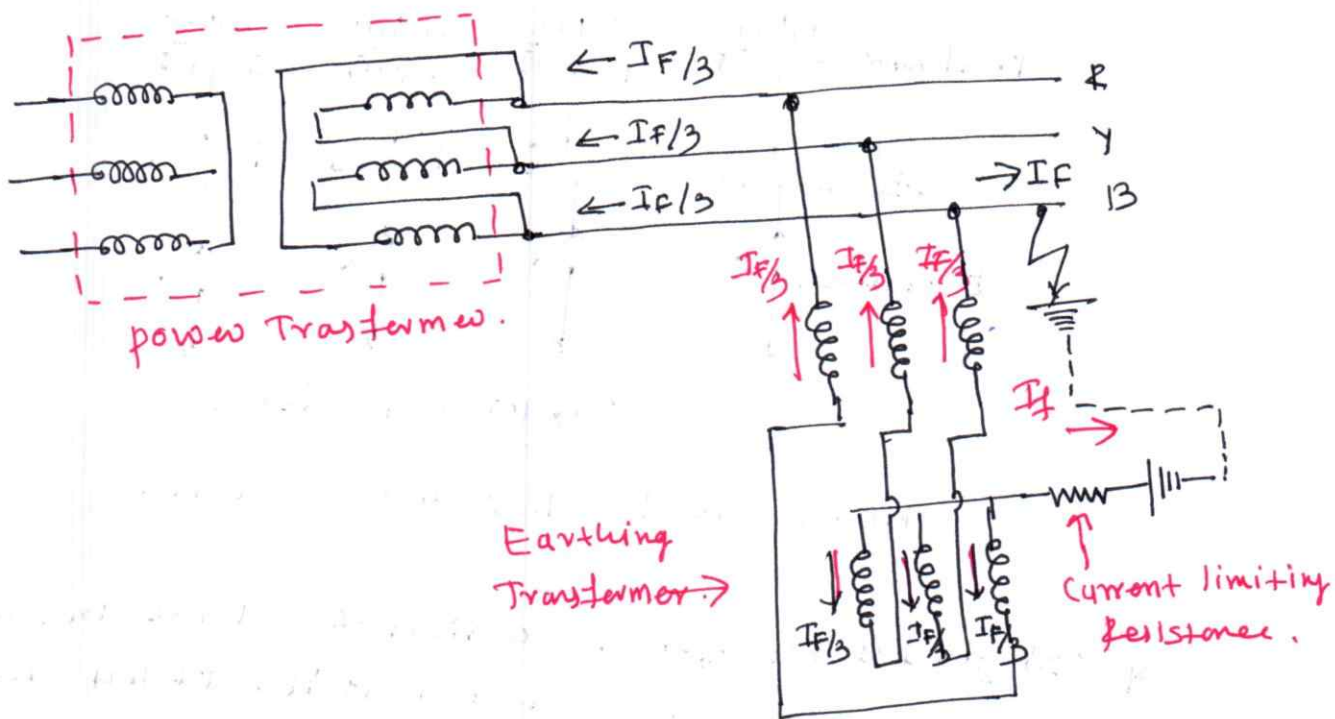 ← IF/3
R
← IF/3
Y
→ IF
← IF/3
B
IF/3
IF/3
IF/3
power Trasformer.
If
Earthing
Transformer→
IF/3
IF/3
IF/3
Current limiting
Resistance.